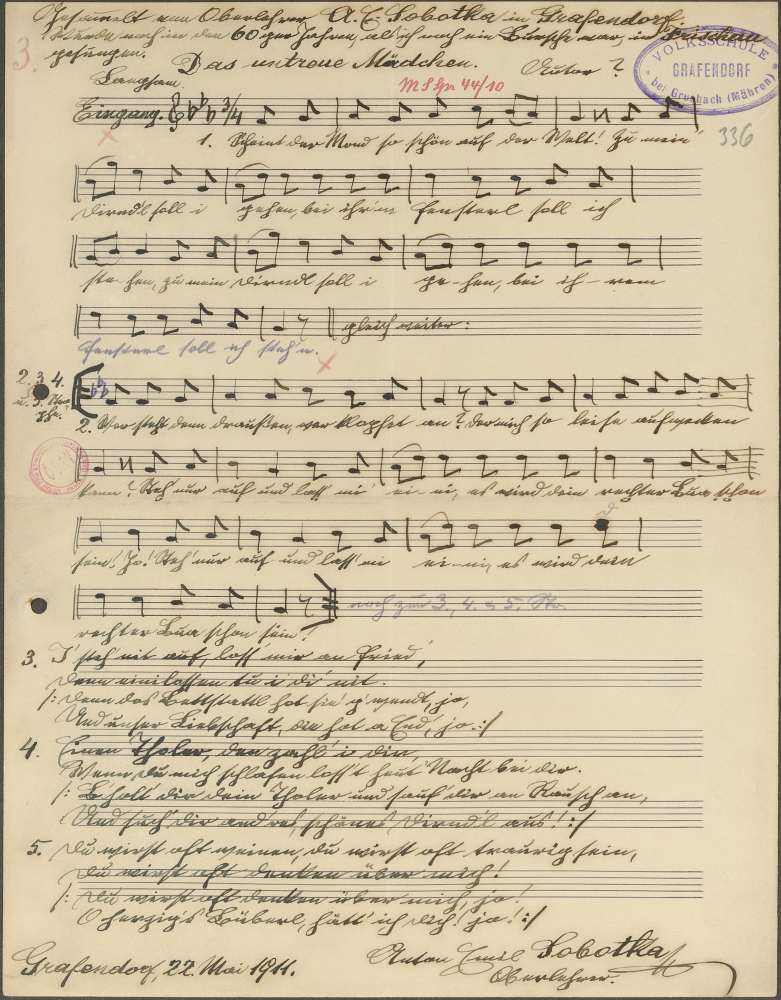 Gesammelt von Oberlehrer A. E. Sobotka in Grafendorf.
Wurde noch in den 60ger Jahren, als ich noch ein Bursche war, in Frischau
3. gesungen. Das untreue Mädchen. Autor ?
VOLKSSCHULE
GRAFENDORF
bei Grusbach (Mähren)
Langsam. M S Gr 44/10
Eingang. 3/4
336
1. Scheint der Mond so schön auf der Welt! Zu mein'
Dirndl soll i gehen, bei ihr'm Fensterl soll ich
ste-hen, zu mein Dirndl soll i ge-hen, bei ih-rem
gleich weiter:
Fensterl soll ich steh'n.
2. 3. 4.
u. 5. Stro-
phe.
2. Wer steht denn draußen, wer klopfet an? Der mich so leise aufwecken
kann? Steh' nur auf und lass' mi' ei-ni, es wird dein rechter Bua schon
sein! Jo! Steh' nur auf und lass' mi ei-ni, es wird dein
noch zur 3., 4. u. 5. Str.
rechter Bua schon sein!
3. I steh' nit auf, loss' mir an Fried',
Denn einilossen tu i di' nit.
/: Denn das Bettstattl hot si' g'wendt, jo,
Und unser Liebschaft, die hot a End', jo :/
4. Einen Tholer, den zahl' i dir,
Wenn du mich schlafen loss't heut' Nacht bei dir.
/: B'holt' dir dein Tholer und sauf' dir an Rausch an,
Und such' dir and'res schönes Dirnd'l aus! :/
5. Du wirst oft weinen, du wirst oft traurig sein,
Du wirst oft denken über mich!
/: Du wirst oft denken über mich, jo!
O herzig's Büberl, hätt' ich dich! jo! :/
Grafendorf, 22. Mai 1911. Anton Emil Sobotka
Oberlehrer.